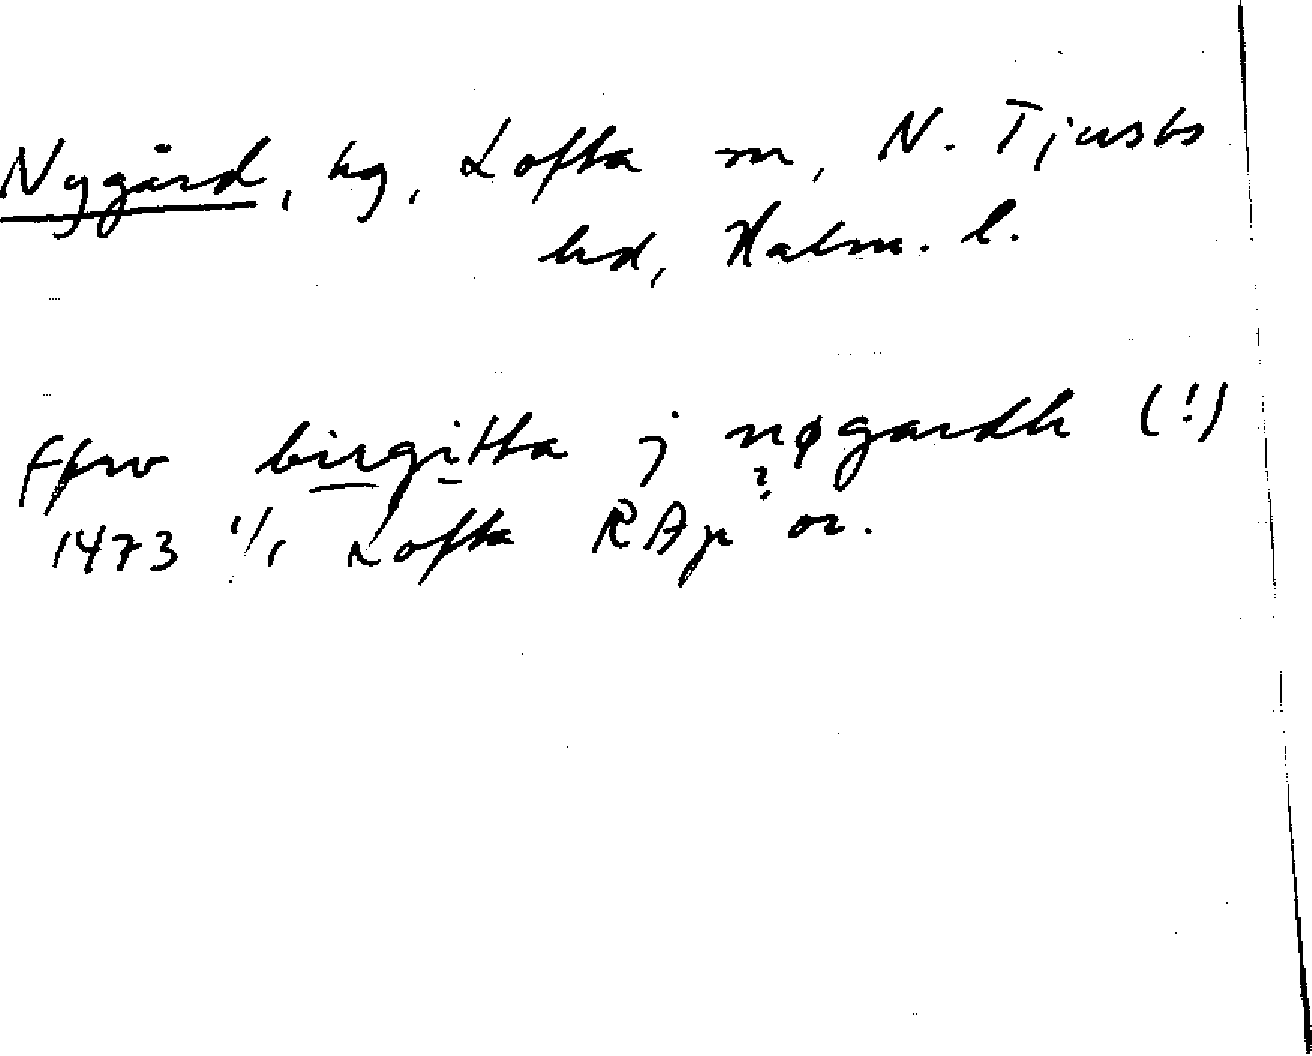 Nygård, hg, Lofta sn, N. Tjusts
hd, Kalm. l.
ffrv birgitta j nøgardh (!)
?
1473 1/1 Lofta RAp or.